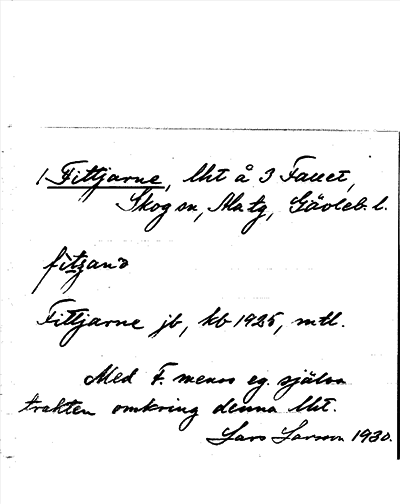 1 Fittjarne, lht å 3 Fauet,
Skog sn, Ala tg, Gävleb. l.
fitʒanə
Fittjarne jb, kb 1925, mtl.
Med F. menas eg. själva
trakten omkring denna lht.
Lars Larsson 1930.